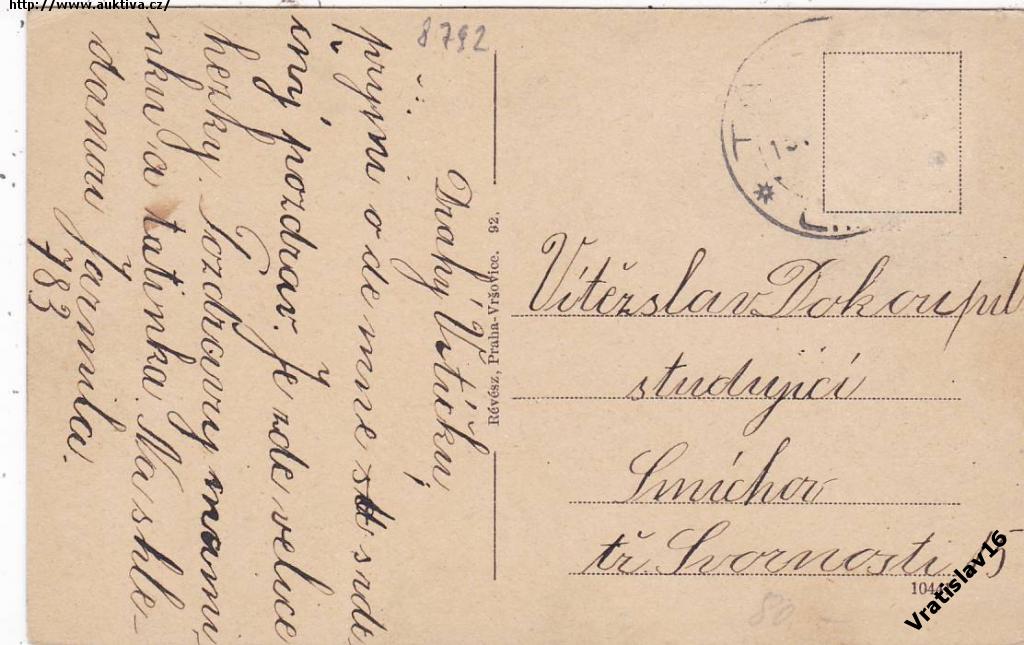 http://www.auktiva.cz/
8792
Drahý Vítíčku,
přijmi ode mne srdt
čný pozdrav. Je zde velice
hezky. Pozdravuj mami-
nku a tatínka. Na shle-
danou Jarmila.
783
Révész, Praha-Vršovice. 92.
Vítězslav Dokoupil
studující
Smíchov
tř. Svornosti 5
1044
80.-
Vratislav16